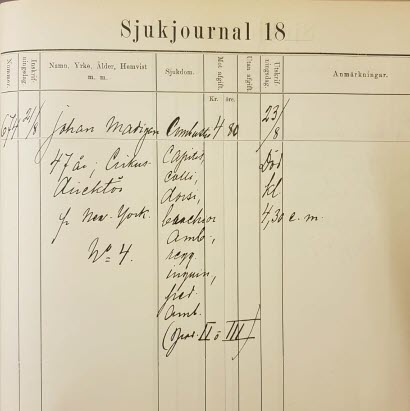 Sjukjournal 18
Nummer.
Inskrifningsdag
Namn, Yrke, Ålder, Hemvist m. m.
Sjukdom.
Mot afgift.
Kr. öre.
Utan afgift.
Utskrifningsdag
Anmärkningar.
674 21/8 Johan Madigan Combustio 4 80 23/8
47 år, Cirkus- capitis, Död
direktör colli, kl
fr New-York. dorsi, 4,30 e.m.
No 4. brachior
amb.,
regg.
inguin,
ped.
amb.
(grad. II o III)